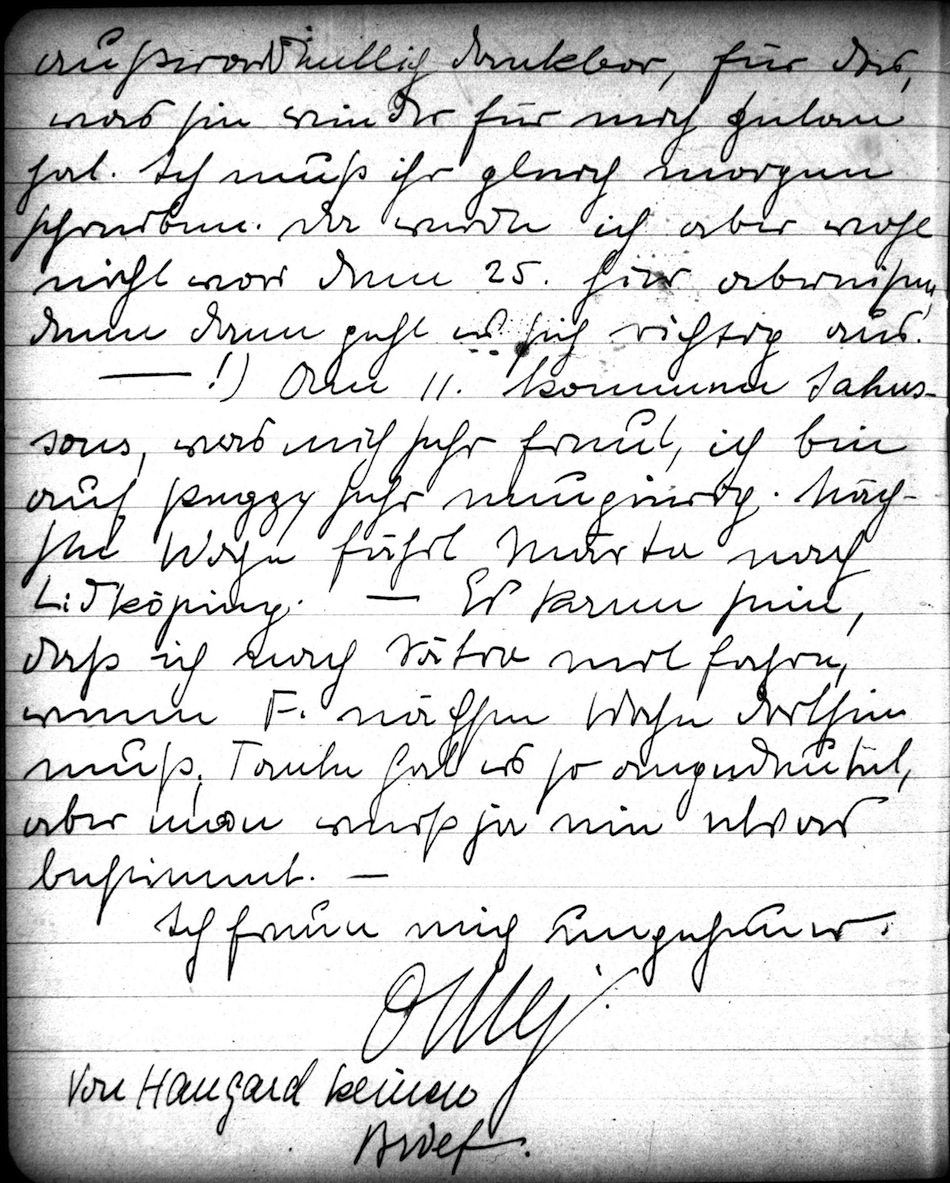 außerordentlich dankbar, für das,
was sie wieder für mich getan
hat. Ich muß ihr gleich morgen
schreiben. Da werde ich aber wohl
nicht vor dem 25. hier abreisen,
denn dann geht es sich richtig aus.
— !) Am 11. kommen Jakus-
sons, was mich sehr freut, ich bin
auf Peggy sehr neugierig. Näch-
ste Woche fährt Märta nach
Lidköping. — Es kann sein,
daß ich nach Sätra mit fahre,
wenn F. nächste Woche dorthin
muß. Tante hat es so angedeutet,
aber man weiß ja nie etwas
bestimmt. —
Ich freue mich ungeheuer.
Olly.
Von Haugard keinen
Brief.